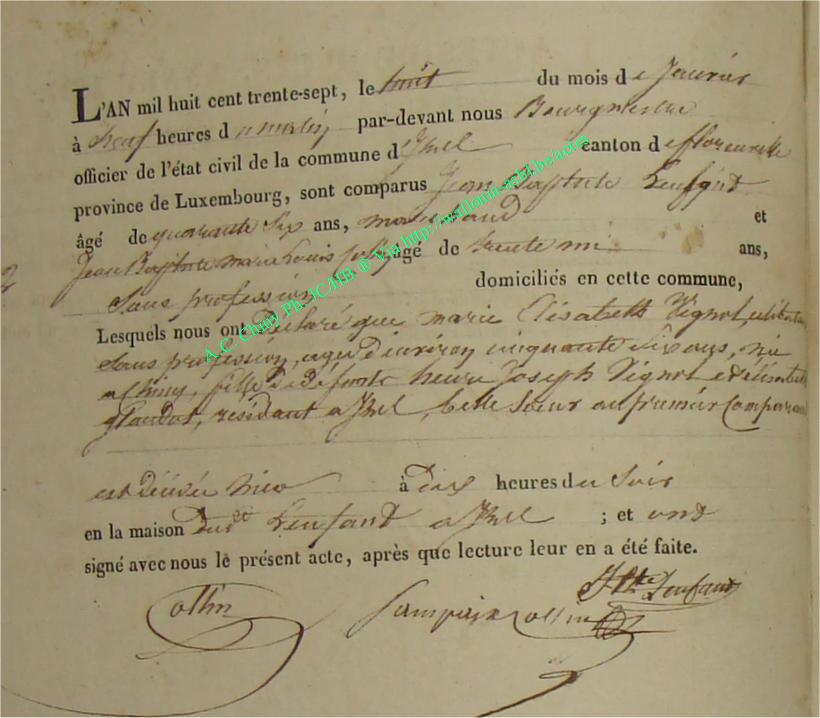 L'AN mil huit cent trente-sept, le huit du mois de Janvier
à neuf heures du matin par-devant nous Bourgmestre
officier de l'état civil de la commune d'Izel canton de florenville
province de Luxembourg, sont comparus Jean Baptiste Lenfant
âgé de quarante six ans, marechand et
Jean Baptiste marie Louis âgé de trente ans,
2
sans profession domiciliés en cette commune,
Lesquels nous ont déclaré que marie Elisabeth Vignot, celibataire
sans profession, agée d'environ cinquante six ans, née
a Chiny, fille de défunts henri Joseph Vignot et d'élisabeth
glaudot, résidant a Izel, belle soeur au premier Comparant
est décédée hier à dix heures du soir
en la maison dudt Lenfant a Izel ; et ont
signé avec nous le présent acte, après que lecture leur en a été faite.
Collin Collin JBte Lenfant
A.C. Chiny Ph.J/CMB @ Via http://wallonia-mbl.be/actes